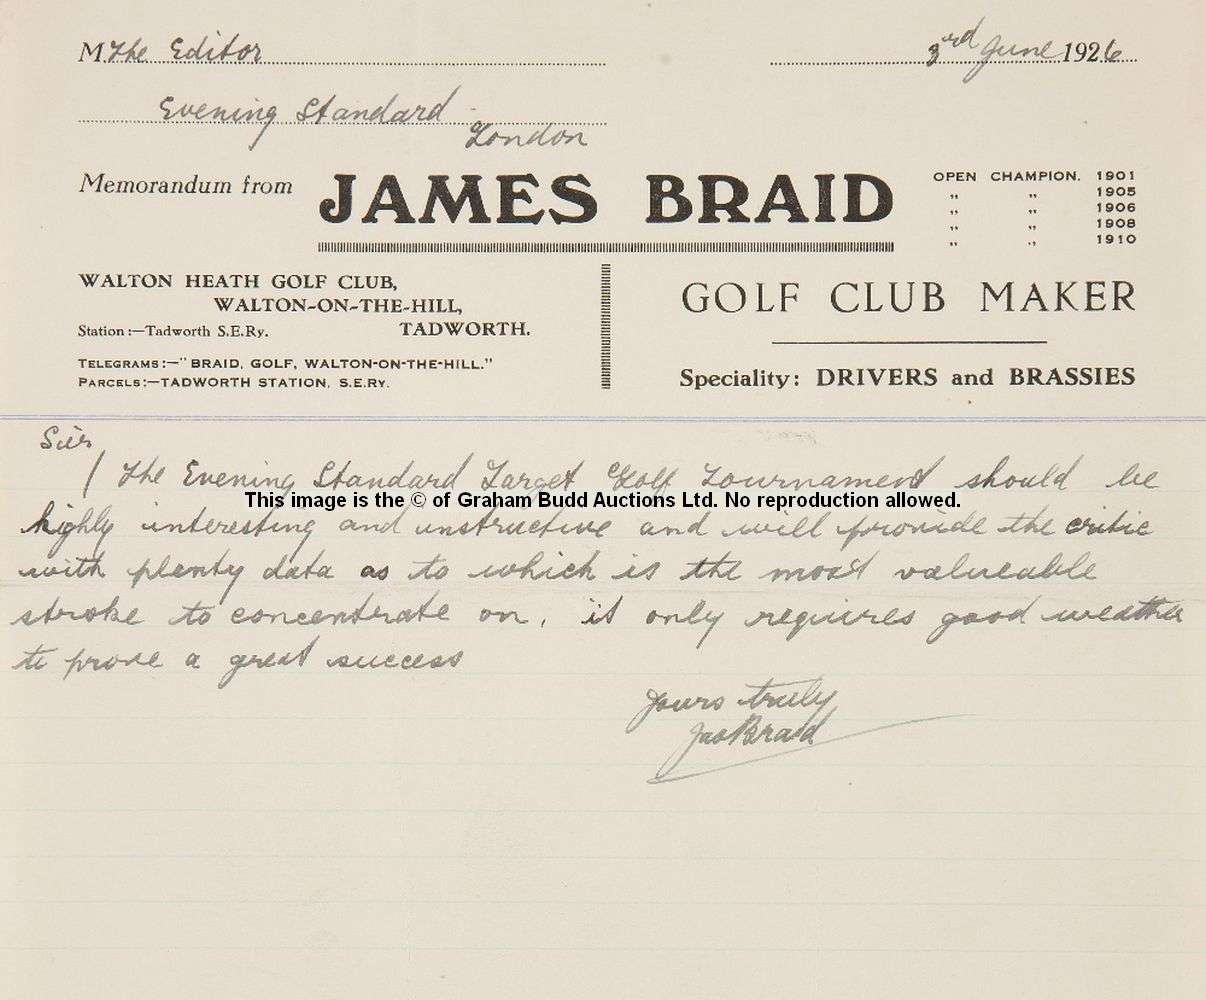 M The Editor
3rd June 1926
Evening Standard
London
Memorandum from JAMES BRAID
OPEN CHAMPION. 1901
„ „ 1905
„ „ 1906
„ „ 1908
„ „ 1910
WALTON HEATH GOLF CLUB,
WALTON-ON-THE-HILL,
Station:—Tadworth S.E.Ry. TADWORTH.
TELEGRAMS:—"BRAID, GOLF, WALTON-ON-THE-HILL."
PARCELS:—TADWORTH STATION, S.E.RY.
GOLF CLUB MAKER
Speciality: DRIVERS and BRASSIES
Sir
/ The Evening Standard Target Golf Tournament should be
This image is the © of Graham Budd Auctions Ltd. No reproduction allowed.
highly interesting and instructive and will provide the critic
with plenty data as to which is the most valueable
stroke to concentrate on, it only requires good weather
to prove a great success
Yours truly
Jas Braid